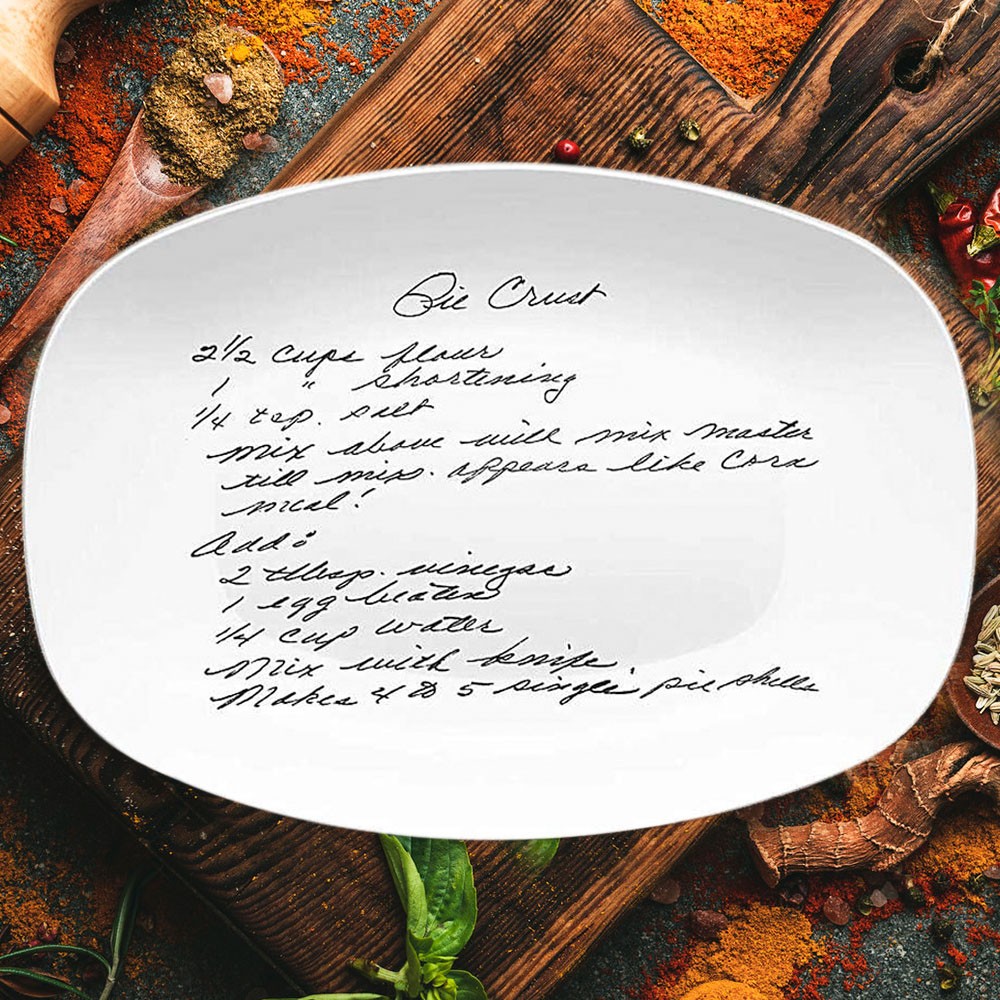 Pie Crust
2 1/2 cups flour
1 " shortening
1/4 tsp. salt
Mix above with mix master
till mix. appears like Corn
meal!
Add:
2 tblesp. vinegar
1 egg beaten
1/4 cup water
Mix with knife.
Makes 4 to 5 single pie shells